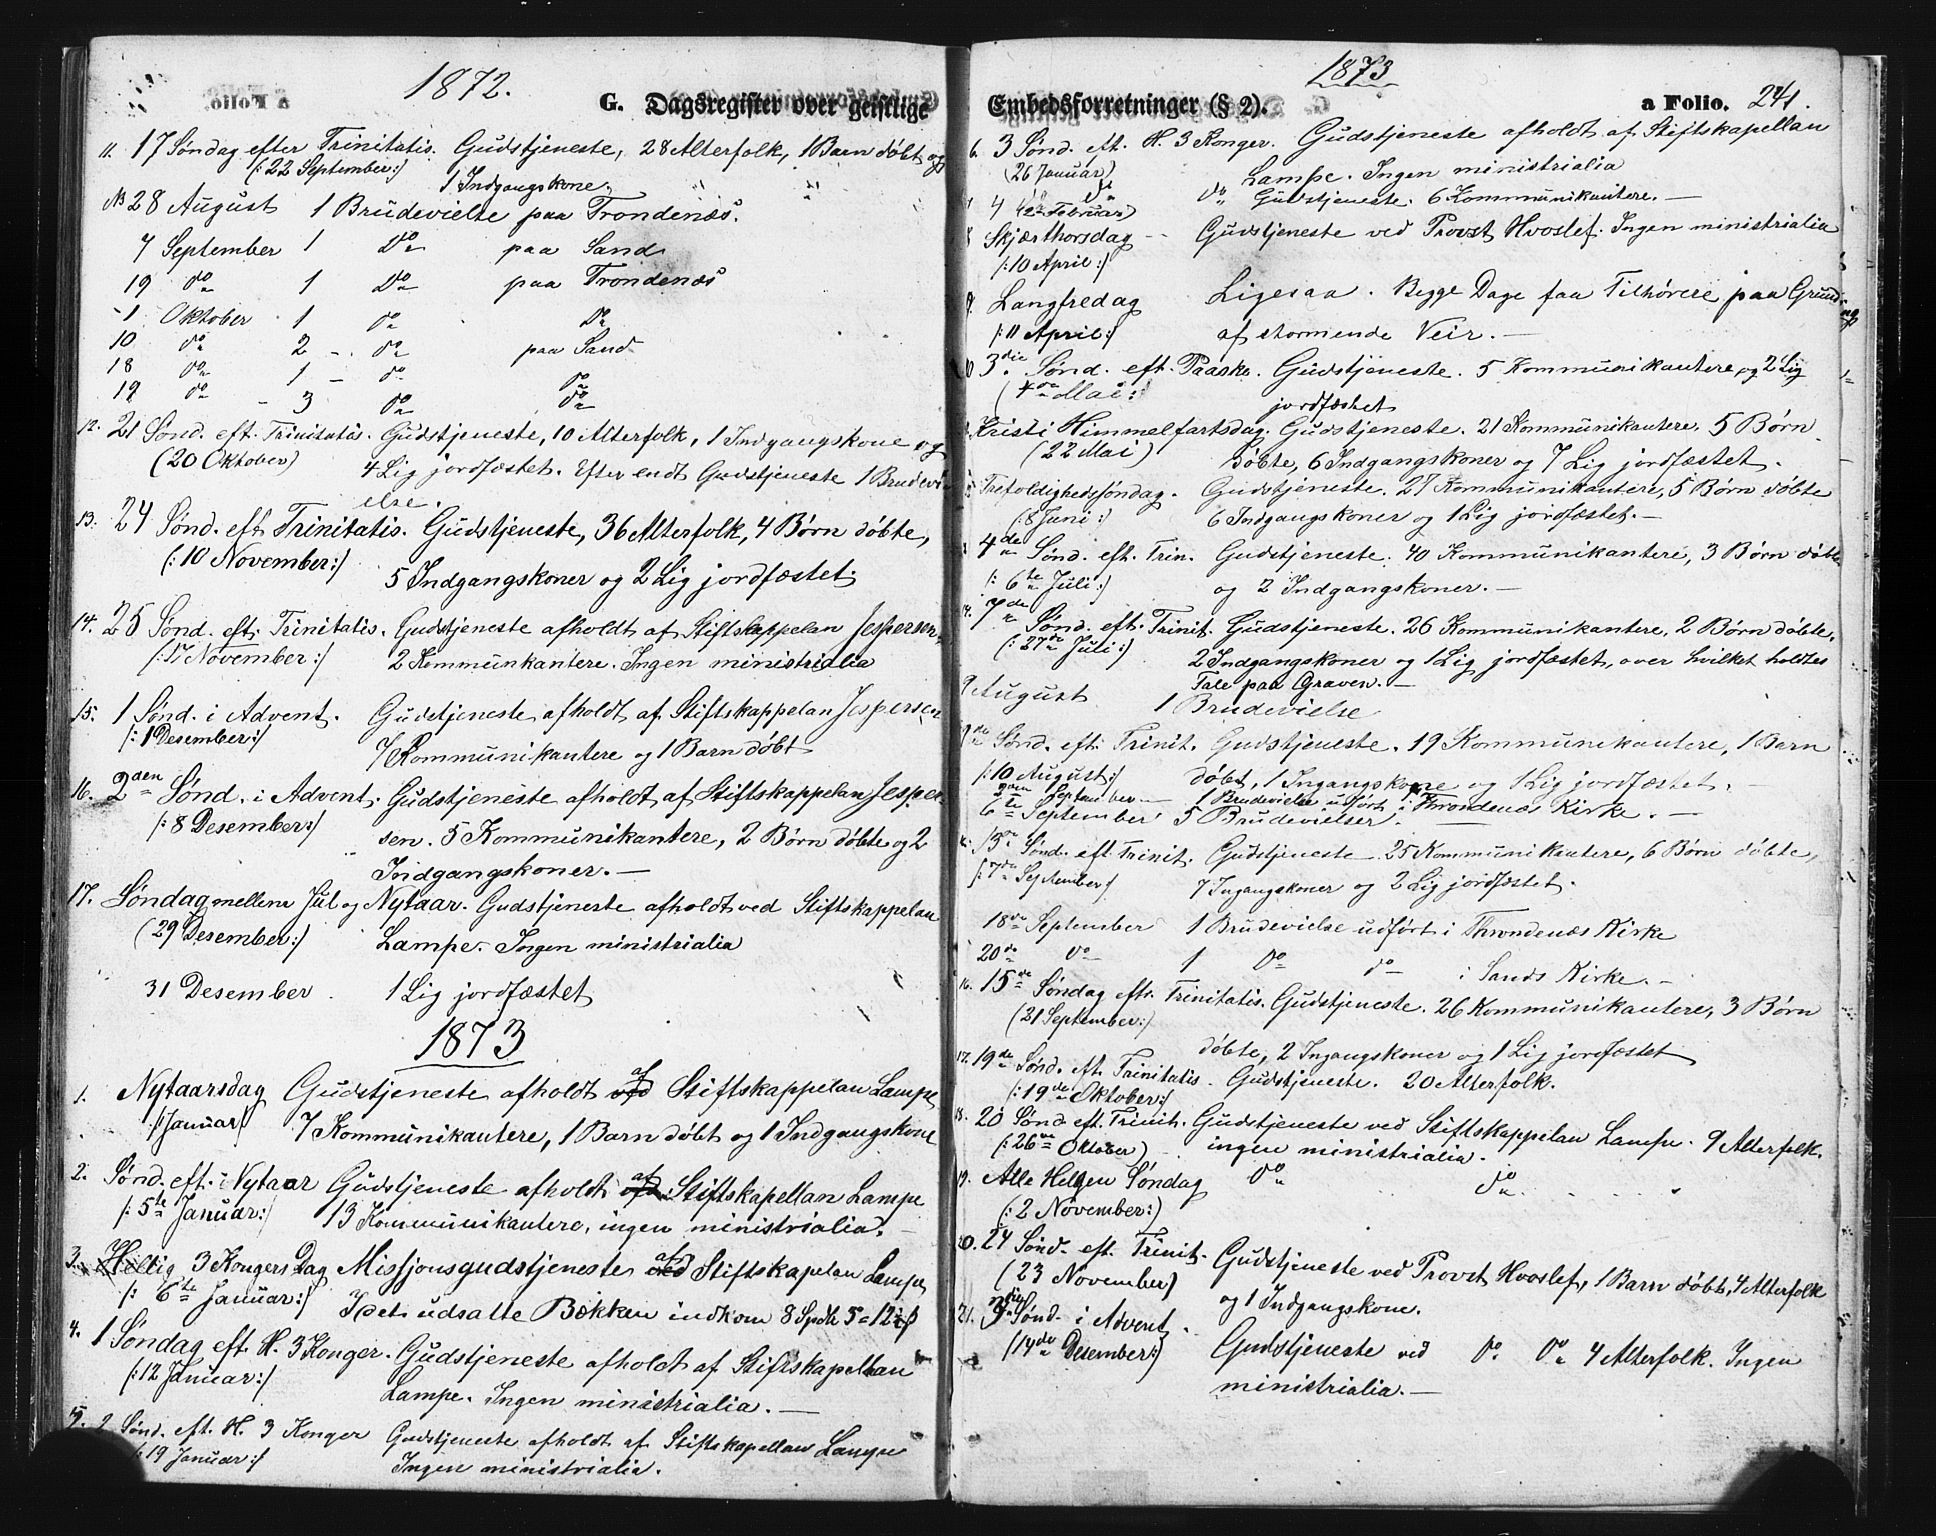 1872.
G. Dagsregister over geistlige
11. 17 Søndag efter Trinitatis. Gudstjeneste, 28 Alterfolk, 1 Barn døbt og
(: 22 September:) 1 Indgangskone.
28 August 1 Brudevielse paa Trondenæs.
7 September 1 Do paa Sand
19 do 1 Do paa Trondenæs
1 Oktober 1 do Do
10 do 2 - do paa Sand
18 do 1 - do do
19 do - 3 do do
12. 21 Sønd. eft. Trinitatis. Gudstjeneste, 10 Alterfolk, 1 Indgangskone og
(20 Oktober) 4 Lig jordfæstet. Efter endt Gudstjeneste 1 Brudevi
else.
13. 24 Sønd. eft Trinitatis. Gudstjeneste, 36 Alterfolk, 4 Børn døbte,
(: 10 November:) 5 Indgangskoner og 2 Lig jordfæstet.
14. 25 Sønd. eft. Trinitatis. Gudstjeneste afholdt af Stiftskappelan Jespersen.
(: 17 November:) 2 Kommunkantere. Ingen ministrialia
15. 1 Sønd. i Advent. Gudstjeneste afholdt af Stiftskappelan Jespersen
(: 1 Desember:) 7 Kommunikantere og 1 Barn døbt
16. 2den Sønd. i Advent. Gudstjeneste afholdt af Stiftskappelan Jesper-
(: 8 Desember:) sen. 5 Kommunikantere, 2 Børn døbte og 2
Indgangskoner. —
17. Søndag mellem Jul og Nytaar. Gudstjeneste afholdt ved Stiftskappelan
(29 Desember:) Lampe. Ingen ministrialia
31 Desember. 1 Lig jordfæstet
1873
1. Nytaarsdag Gudstjeneste afholdt af Stiftskappelan Lampe
(1 Januar) 7 Kommunikantere, 1 Barn døbt og 1 Indgangskone
2. Sønd. eft. Nytaar Gudstjeneste afholdt af Stiftskapellan Lampe
(: 5te Januar:) 13 Kommunikantere, ingen ministrialia. —
3. Hellig 3 Kongers Dag Missjonsgudstjeneste af Stiftskapelan Lampe
(: 6te Januar:) I det udsatte Bækken indkom 8 Spdl 5 = 12 ß
4. 1 Søndag eft. H. 3 Konger. Gudstjeneste afholdt af Stiftskapellan
(: 12 Januar:) Lampe. Ingen ministrialia. —
5. 2 Sønd. eft. H. 3 Konger Gudstjeneste afholdt af Stiftskapellan Lampe
(: 19 Januar:) Ingen ministrialia.
1873
Embedsforretninger (§ 2). a Folio. 241.
6. 3 Sønd. eft. H. 3 Konger. Gudstjeneste afholdt af Stiftskapellan
(26 Januar) Lampe. Ingen ministrialia
4 do do do Gudstjeneste. 6 Kommunikantere. —
(2 Februar)
8 Skjærthorsdag - Gudstjeneste ved Provst Hvoslef. Ingen ministrialia
(: 10 April:)
9. Langfredag Ligesaa. Begge Dage faa Tilhørere paa Grund
(: 11 April:) af stormende Veir. —
10 3die Sønd. eft. Paaske. Gudstjeneste. 5 Kommunikantere, og 2 Lig
(4de Mai: jordfæstet
Kristi Himmelfartsdag. Gudstjeneste. 21 Kommunikantere, 5 Børn
(22 Mai) døbte, 6 Indgangskoner og 7 Lig jordfæstet.
Trefoldighedssøndag. Gudstjeneste. 27 Kommunikantere, 5 Børn døbte
(: 8 Juni:) 6 Indgangskoner og 1 Lig jordfæstet. —
4de Sønd. eft. Trin. Gudstjeneste. 40 Kommunikantere, 3 Børn døbte
(: 6te Juli:) og 2 Indgangskoner. —
14. 7de Sønd. eft. Trinit. Gudstjeneste. 26 Kommunikantere, 2 Børn døbte.
(: 27de Juli:) 2 Indgangskoner og 1 Lig jordfæstet, over hvilket holdtes
Tale paa Graven. —
9 August 1 Brudevielse
9de Sønd. eft. Trinit. Gudstjeneste. 19 Kommunikantere, 1 Barn
(: 10 August:) døbt, 1 Ingangskone og 1 Lig jordfæstet.
September — 1 Brudevielse udført i Throndenæs Kirke. —
6te September 5 Brudevielser.
13de Sønd. eft. Trinit. Gudstjeneste. 25 Kommunikantere, 6 Børn døbte,
(: 7de September) 7 Ingangskoner og 2 Lig jordfæstet.
18de September 1 Brudevielse udført i Throndenæs Kirke
20de do 1 Do do i Sands Kirke. —
16. 15de Søndag eft. Trinitatis. Gudstjeneste. 26 Kommunikantere, 3 Børn
(21 September:) døbte, 2 Ingangskoner og 1 Lig jordfæstet
17. 19de Sønd. eft. Trinitatis. Gudstjeneste. 20 Alterfolk.
(: 19de Oktober:)
18. 20 Sønd eft. Trinit. Gudstjeneste ved Stiftskappelan Lampe. 9 Alterfolk.
(: 26de Oktober) ingen ministrialia.
19. Alle Helgen Søndag Do do
(: 2 November:)
20. 24 Sønd. eft. Trinit. Gudstjeneste ved Provst Hvoslef, 1 Barn døbt, 4 Alterfolk
(23 November) og 1 Indgangskone.
21. 3die Sønd. i Advent. Gudstjeneste ved Do Do 4 Alterfolk. Ingen
(14de Desember:) ministrialia. —